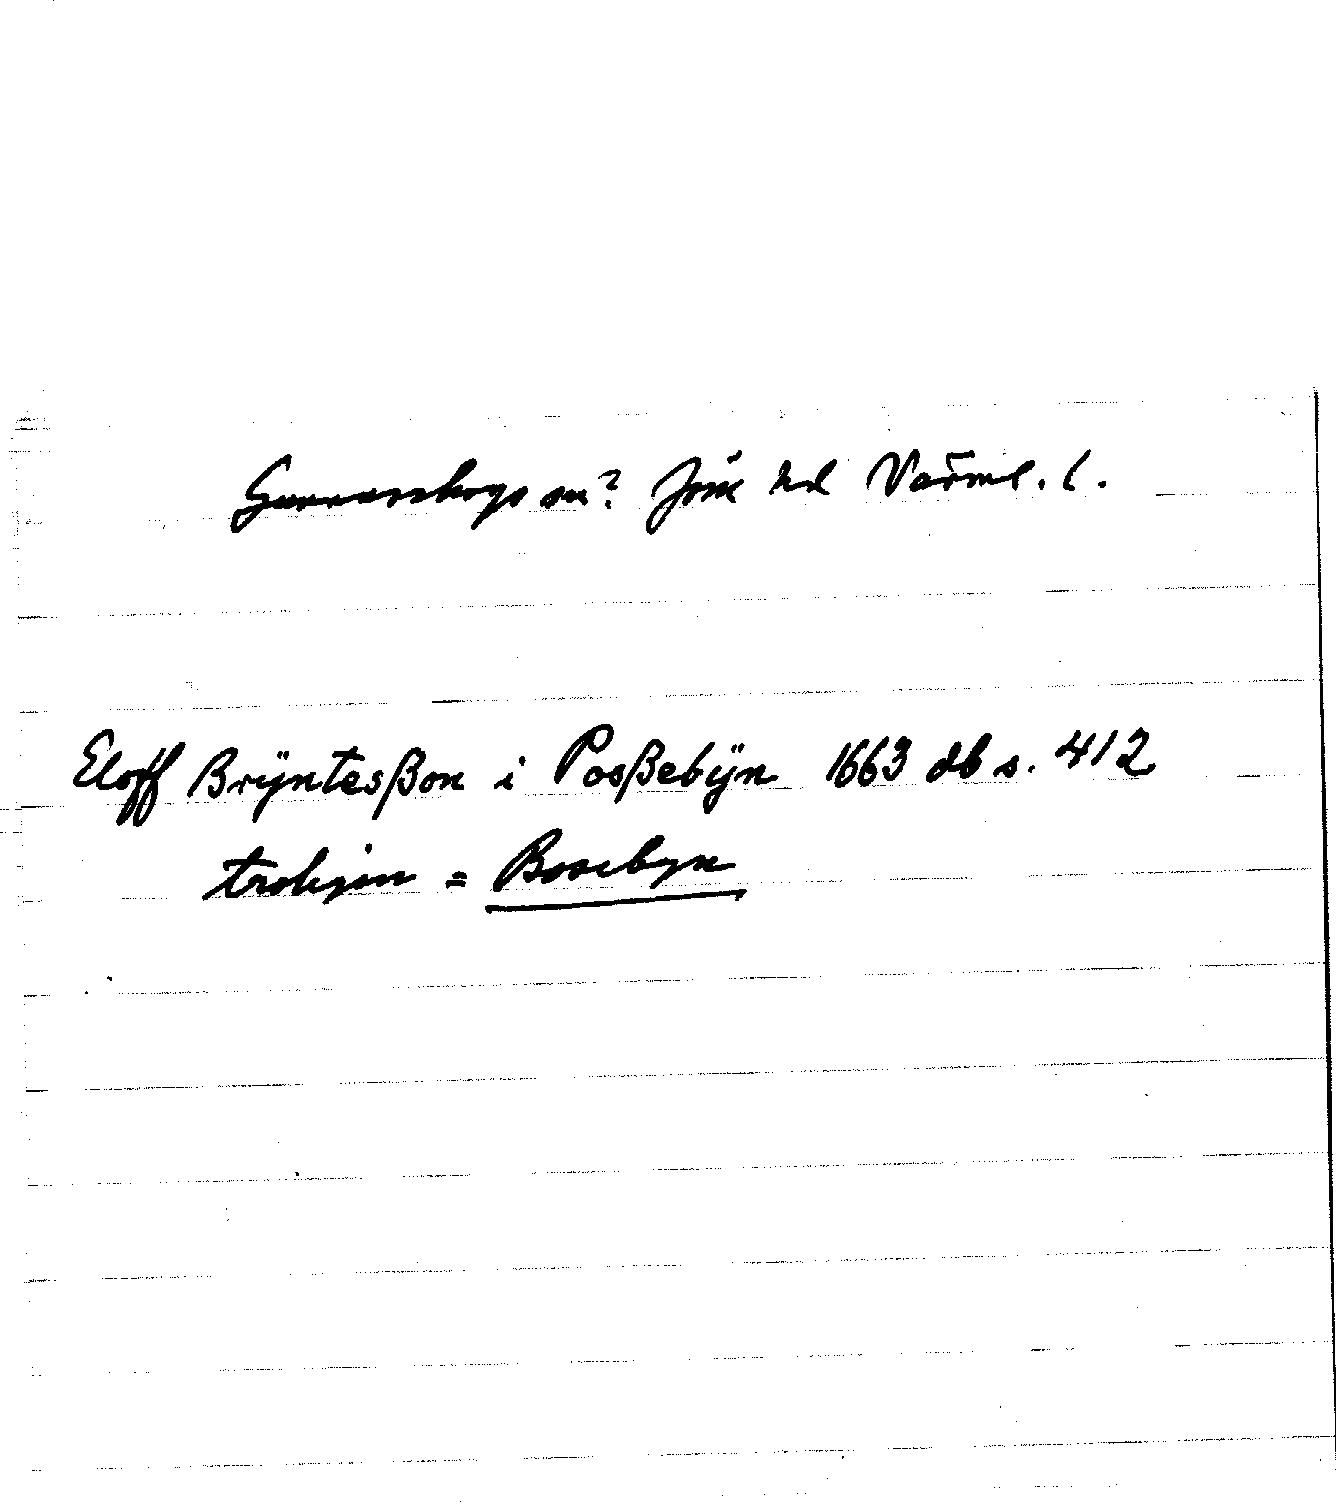 Gunnarskogs sn? Jöse hd Värml. l.
Eloff Brÿntesßon i Posßebÿn 1663 db s. 412
troligen = Bosebyn